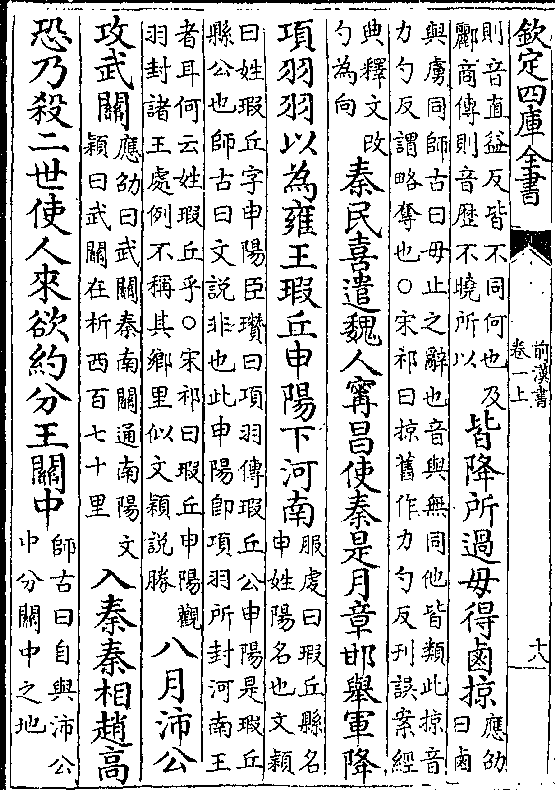 欽定四庫全書
前漢書
卷一上
十八
則音直益反皆不同何也及
酈商傳則音歷不曉所以
皆降所過毋得鹵掠
應劭
曰鹵
與虜同師古曰毋止之辭也音與無同他皆類此掠音
力勺反謂略奪也○宋祁曰掠舊作力勺反刊誤案經
典釋文改
勺為向
秦民喜遣魏人甯昌使秦是月章邯舉軍降
項羽羽以為雍王瑕丘申陽下河南
服虔曰瑕丘縣名
申姓陽名也文穎
曰姓瑕丘字申陽臣瓚曰項羽傳瑕丘公申陽是瑕丘
縣公也師古曰文說非也此申陽即項羽所封河南王
者耳何云姓瑕丘乎○宋祁曰瑕丘申陽觀
羽封諸王處例不稱其鄉里似文穎說勝
八月沛公
攻武關
應劭曰武關秦南關通南陽文
穎曰武關在析西百七十里
入秦秦相趙高
恐乃殺二世使人來欲約分王關中
師古曰自與沛公
中分關中之地